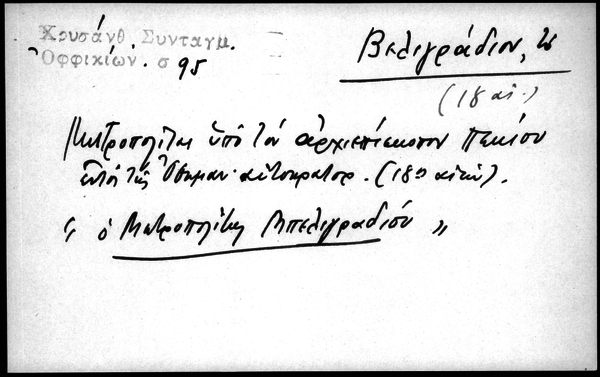 Χρυσάνθ. Συνταγμ.
Ὀφφικίων. σ 95
Βελιγράδιον, το
(18 αἰ.)
Μητροπολῖται ὑπὸ τὸν ἀρχιεπίσκοπον Πεκίου
ἐντὸς τῆς Ὀθωμαν. αὐτοκρατορ. (18ον αἰών).
" ὁ Μητροπολίτης Μπελιγραδίου "